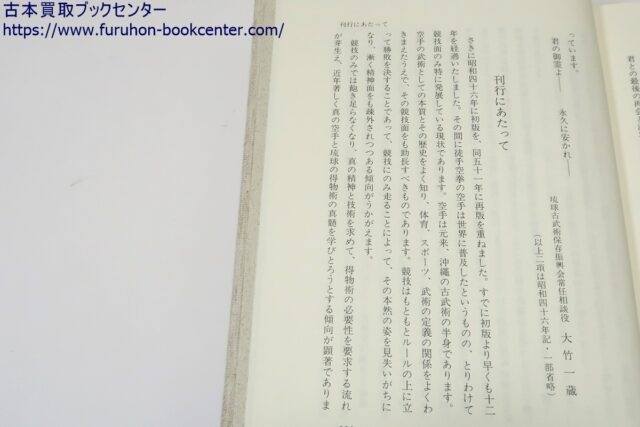 古本買取ブックセンター
https://www.furuhon-bookcenter.com/
刊行にあたって
君との最後の再会
っています。
君の御霊よ――永久に安かれ――
琉球古武術保存振興会常任相談役 大竹一蔵
（以上二項は昭和四十六年記・一部省略）
刊行にあたって
さきに昭和四十六年に初版を、同五十一年に再版を重ねました。すでに初版より早くも十二
年を経過いたしました。その間に徒手空拳の空手は世界に普及したというものの、とりわけて
競技面のみ特に発展している現状であります。空手は元来、沖縄の古武術の半身であります。
空手の武術としての本質とその歴史をよく知り、体育、スポーツ、武術の定義の関係をよくわ
きまえたうえで、その競技面をも助長すべきものであります。競技はもともとルールの上に立
って勝敗を決することであって、競技にのみ走ることによって、その本然の姿を見失いがちに
なり、漸く精神面をも疎外されつつある傾向がうかがえます。
競技のみでは飽き足らなくなり、真の精神と技術を求めて、得物術の必要性を要求する流れ
が芽生え、近年著しく真の空手と琉球の得物術の真髄を学びとろうとする傾向が顕著でありま